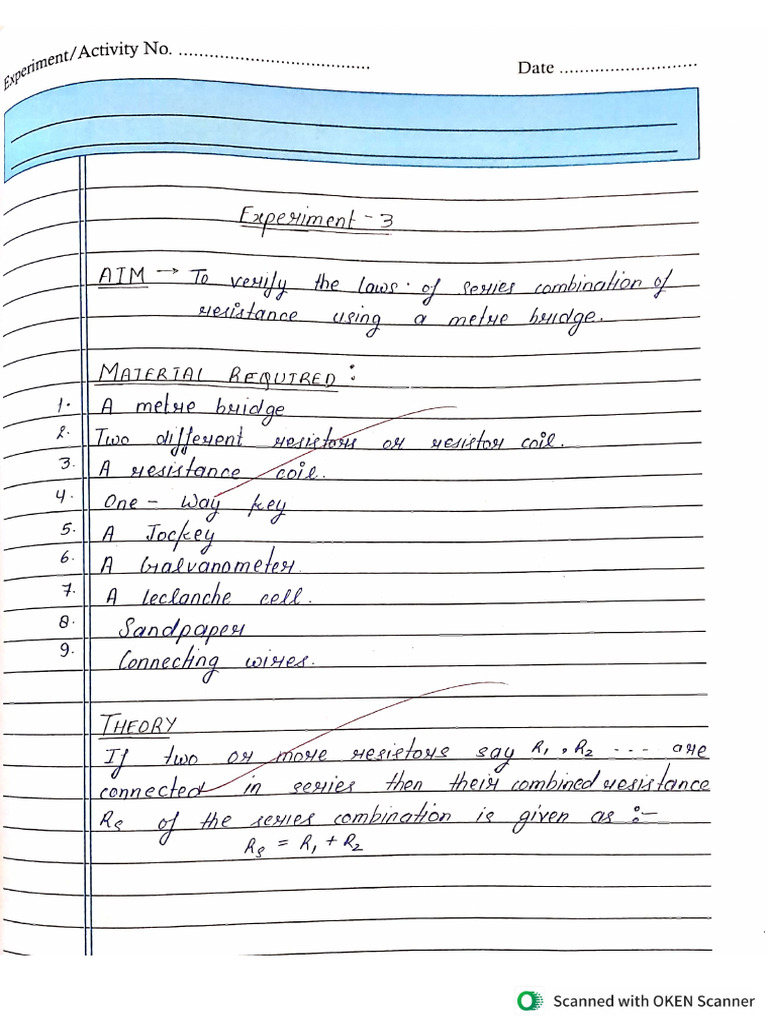 Experiment/Activity No. ....................................
Date ...........................
Experiment - 3
AIM → To verify the laws of series combination of
resistance using a metre bridge.
MATERIAL REQUIRED :
1. A metre bridge
2. Two different resistors or resistor coil.
3. A resistance coil.
4. One - way key
5. A Jockey
6. A Galvanometer.
7. A leclanche cell.
8. Sandpaper
9. Connecting wires.
THEORY
If two or more resistors say R₁, R₂ ... are
connected in series then their combined resistance
Rs of the series combination is given as :-
Rs = R₁ + R₂
Scanned with OKEN Scanner